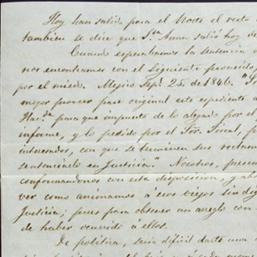 Hoy han salido para el Norte el resto
tambien se dice que Sta Anna salió hoy de
Cuando esperabamos la sentencia
nos encontramos con el siguiente proveido
por el mismo. Mejico Sepe. 25, de 1846.
mejor proveer pase original este espediente a
Haci para que impuesto de lo alegado por el
informe, y lo pedido por el Sor. Fiscal,
interesados, con que se terminen sus reclamos
sentenciarlo en Justicia." Nosotros,
conformandonos con esta disposicion, y
ver como animamos á esos
Justicia; pues para obscuro un arreglo con
de haber recurrido a ellos.
De politica, seria dificil darte una